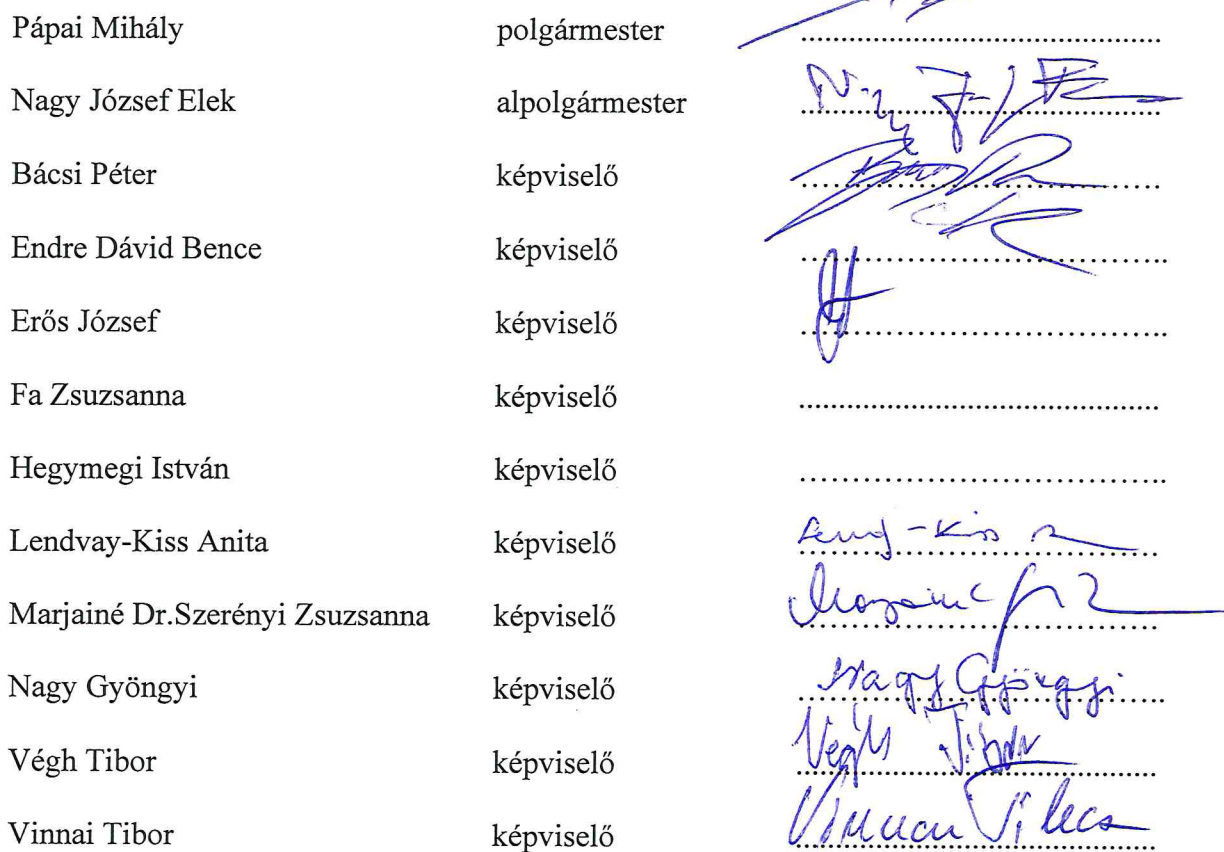 Pápai Mihály polgármester ........................................
Nagy József Elek alpolgármester ........................................
Bácsi Péter képviselő ........................................
Endre Dávid Bence képviselő ........................................
Erős József képviselő ........................................
Fa Zsuzsanna képviselő ........................................
Hegymegi István képviselő ........................................
Lendvay-Kiss Anita képviselő ........................................
Marjainé Dr.Szerényi Zsuzsanna képviselő ........................................
Nagy Gyöngyi képviselő Nagy Gyöngyi
Végh Tibor képviselő Végh Tibor
Vinnai Tibor képviselő ........................................